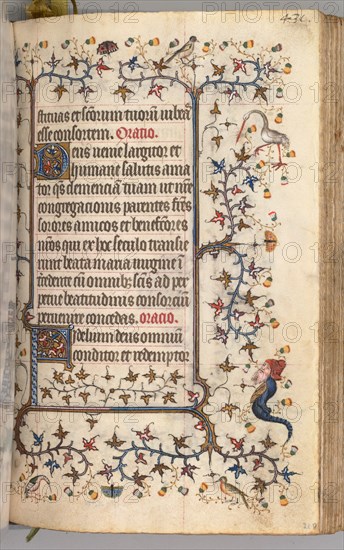 436
stituas et scorum tuorum iubea
esse consortem. Oratio.
Deus uenie largitor et
humane salutis ama
tor qs clemenciam tuam ut nre
congregacionis parentes frs
sorores amicos et benefcores
nros qui ex hoc seculo transie
runt beata maria uirgine i
tercedente cum omnibus scis ad per
petue beatitudinis consorciu
peruenire concedas. oratio.
Fidelium deus omnium
conditor et redemptor